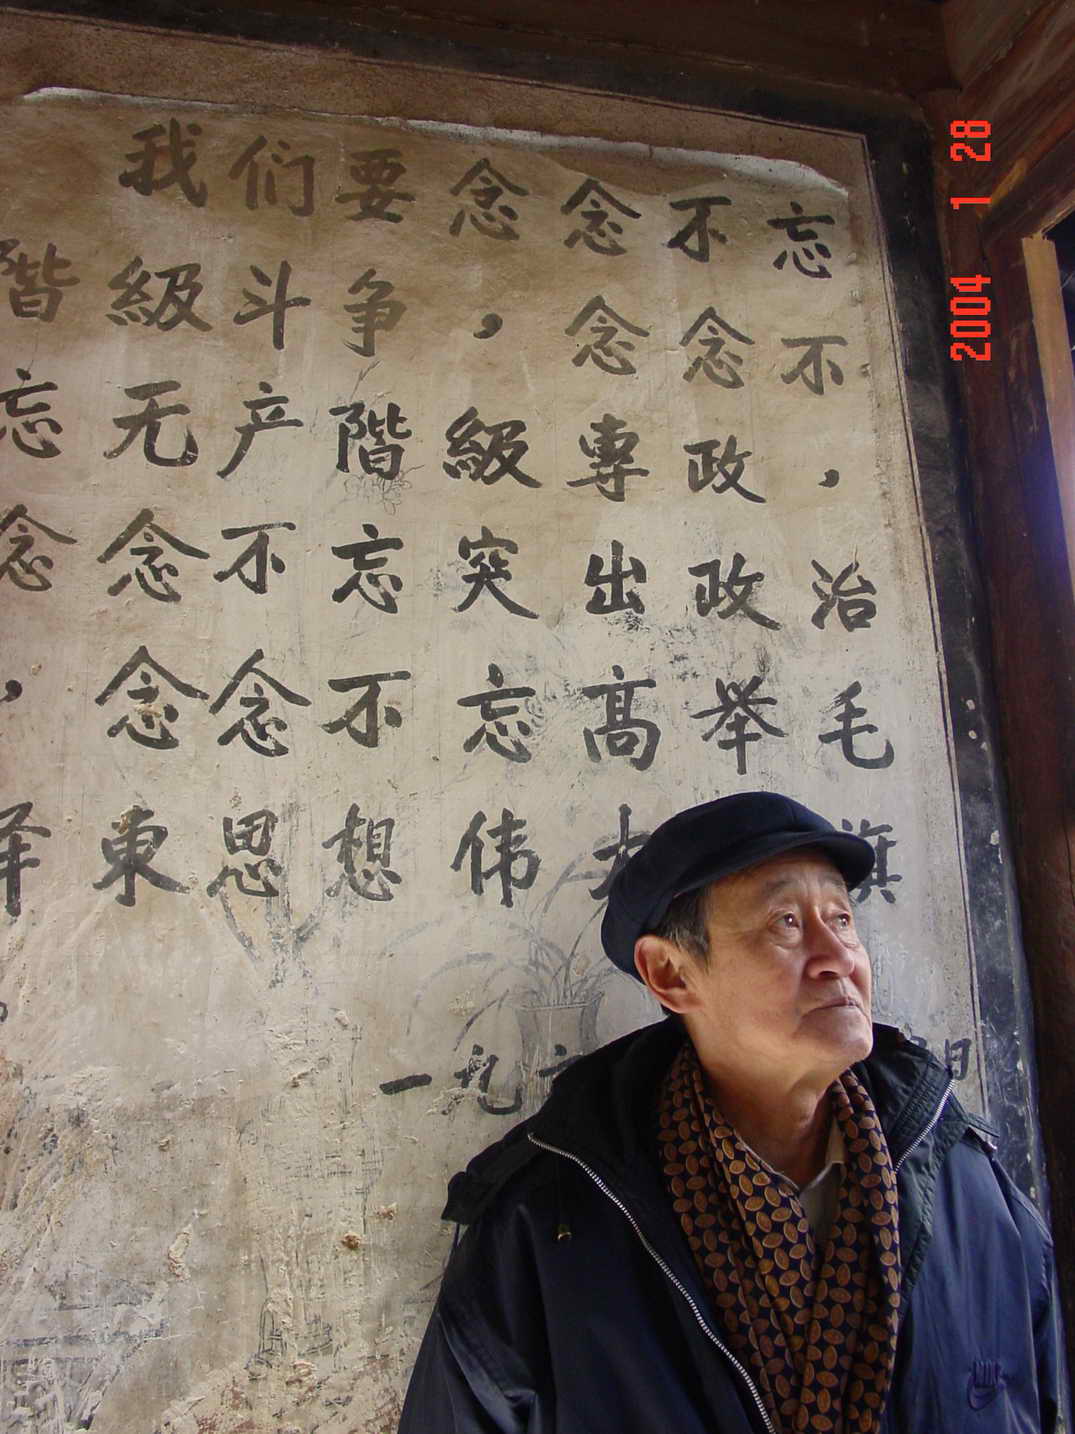 我们要念念不忘
階級斗争，念念不
忘无产階級專政，
念念不忘突出政治
，念念不忘高举毛
泽東思想伟大旗
。
一九六 日
2004 1 28